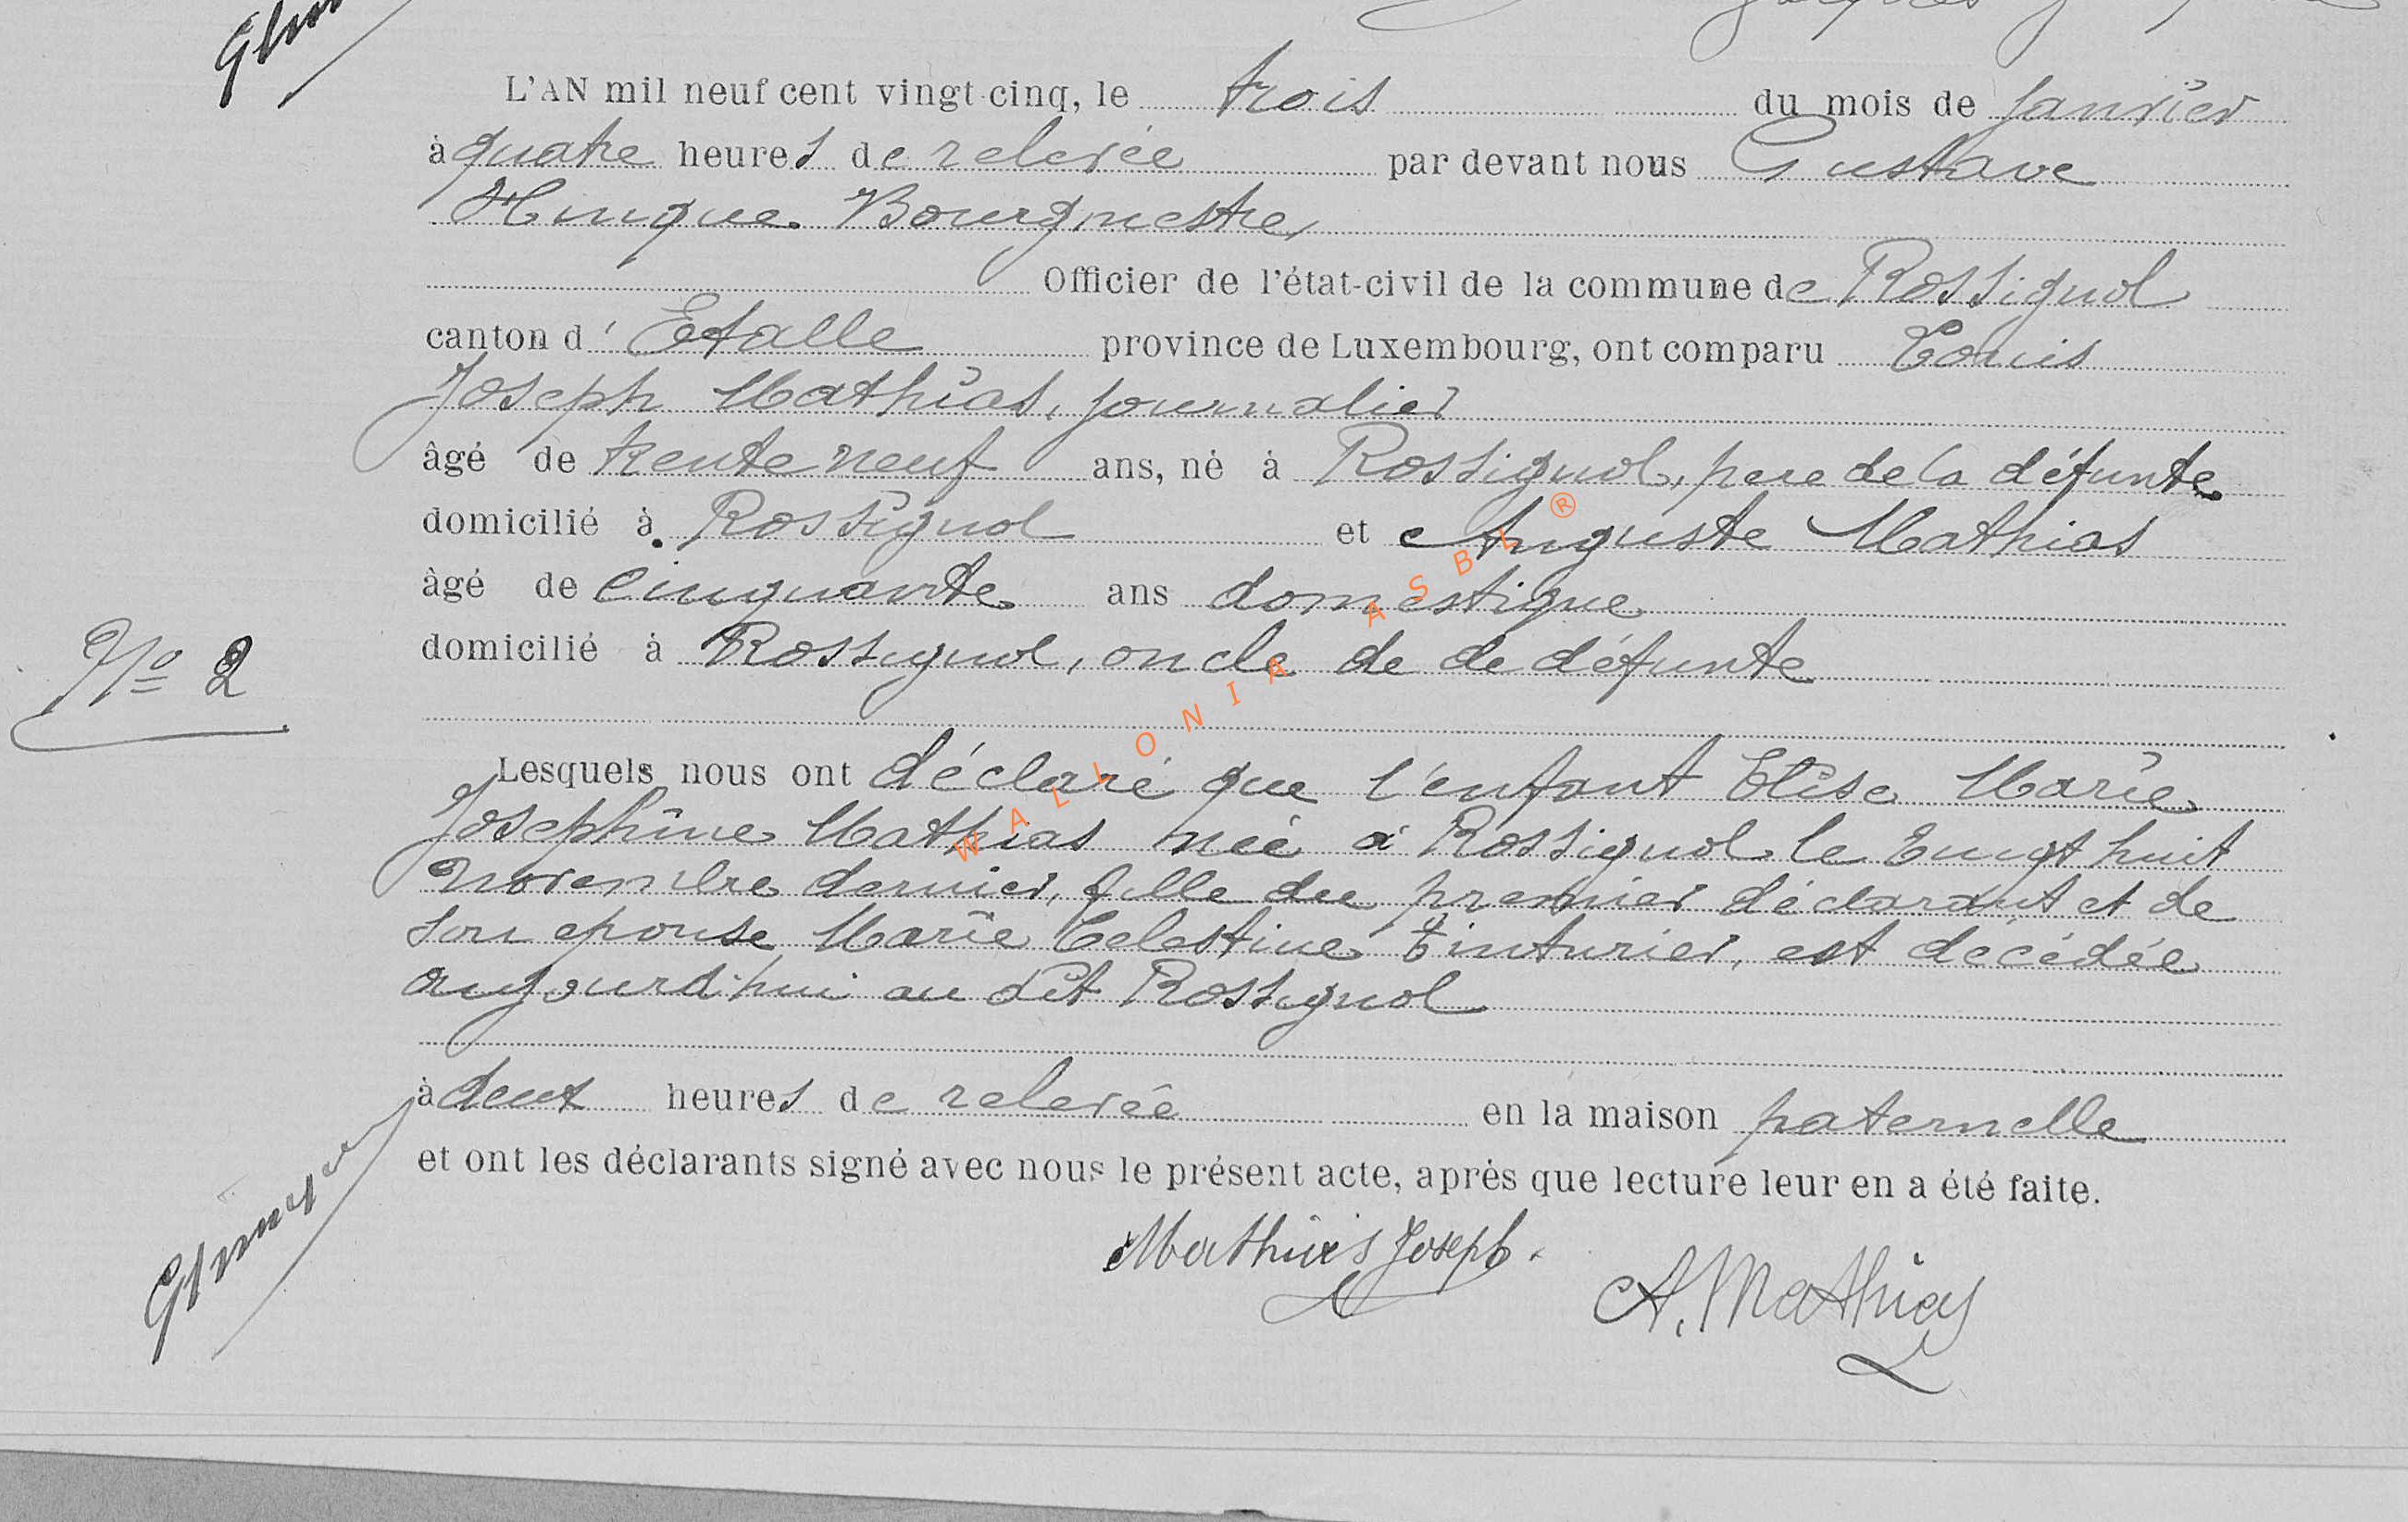 L'AN mil neuf cent vingt-cinq, le trois du mois de Janvier
à quatre heures de relevée par devant nous Gustave
Hinque Bourgmestre,
Officier de l'état-civil de la commune de Rossignol
canton d' Etalle province de Luxembourg, ont comparu Louis
Joseph Mathias, journalier
âgé de trente neuf ans, né à Rossignol, pere de la défunte
domicilié à Rossignol et Auguste Mathias
âgé de cinquante ans domestique
N° 2
domicilié à Rossignol, oncle de de défunte
WALLONIA ASBL ®
Lesquels nous ont déclaré que l'enfant Elise Marie
Josephine Mathias née à Rossignol le vingt huit
novembre dernier, fille du premier déclarant et de
son epouse Marie Celestine Tinturier, est décédée
aujourd'hui au dit Rossignol
à deux heures de relevée en la maison paternelle
et ont les déclarants signé avec nous le présent acte, après que lecture leur en a été faite.
Mathias Joseph.
A. Mathias